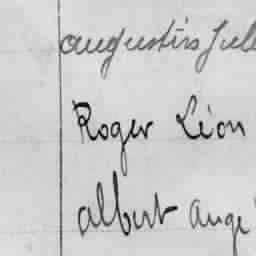 augustin Jule
Roger Léon
albert ange